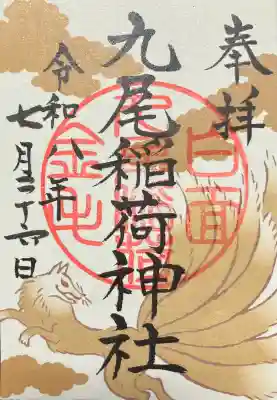 奉拝
九尾稲荷神社
令和八年
七月二十六日
白面
金毛